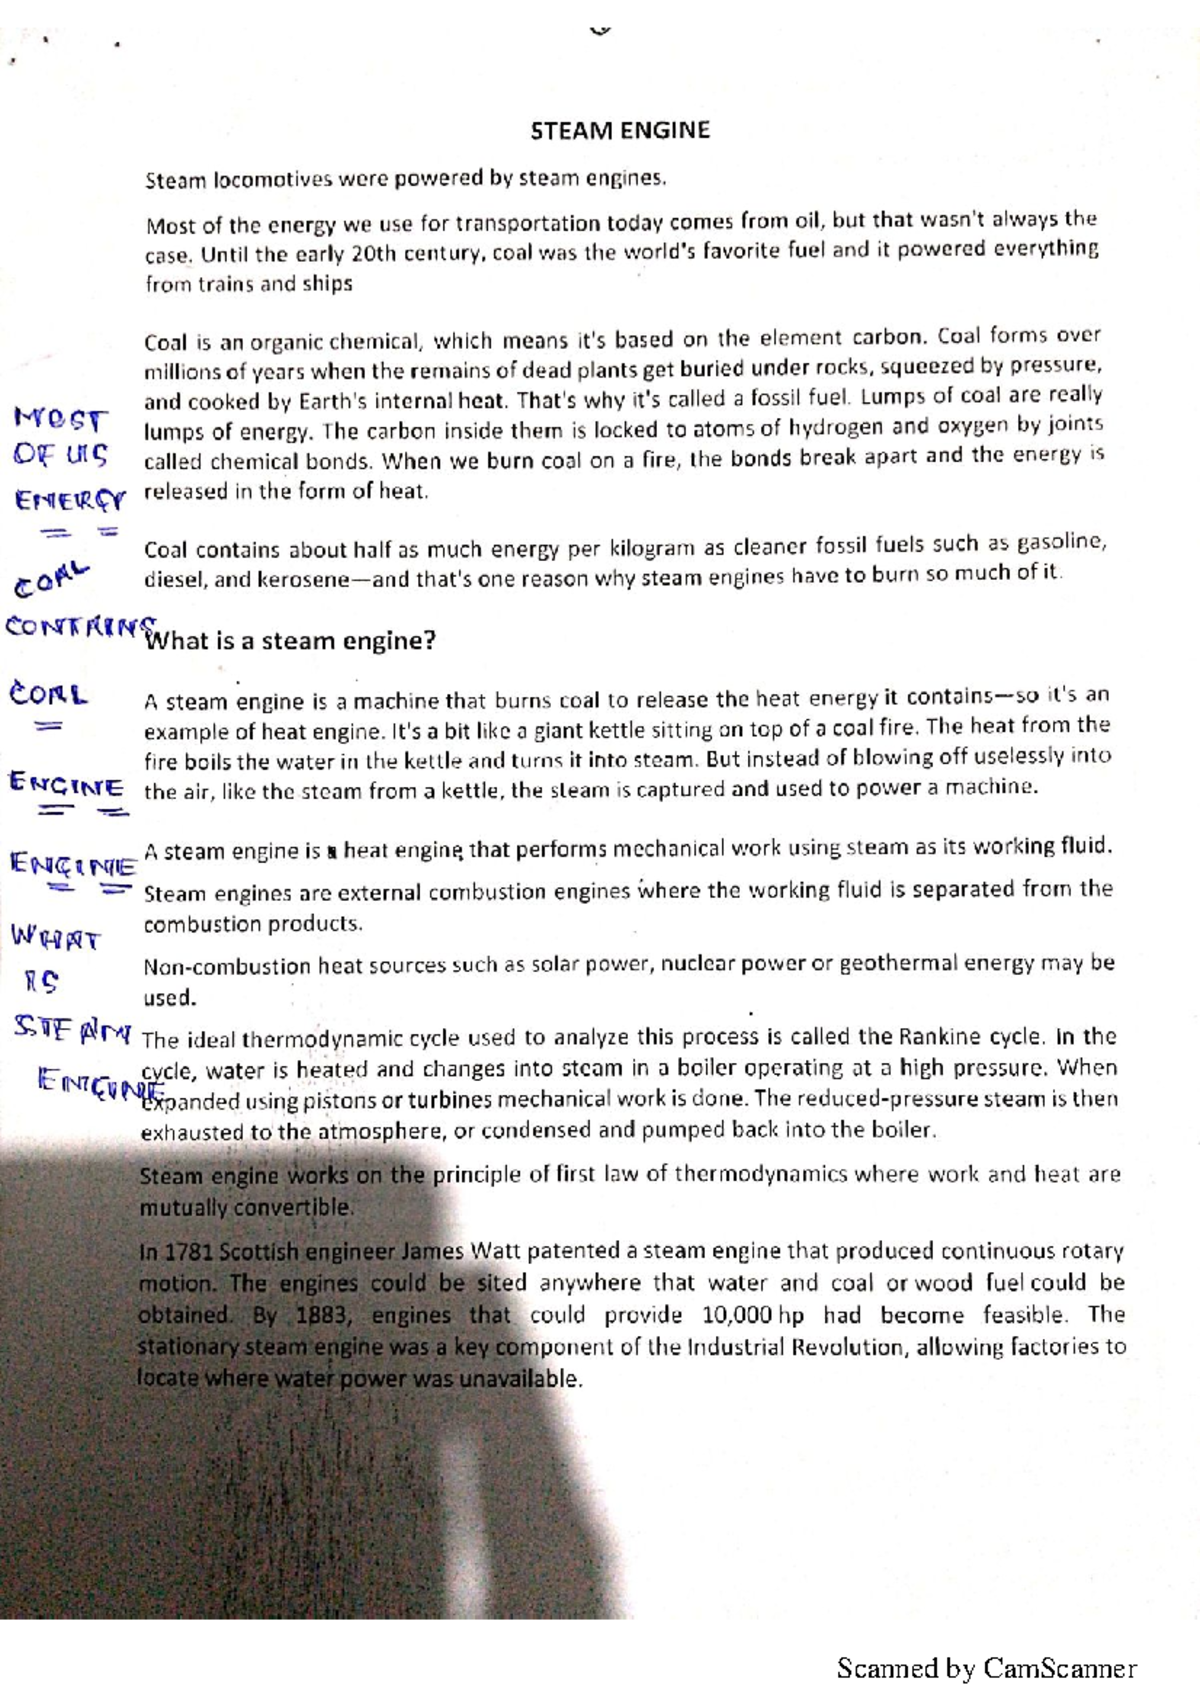 STEAM ENGINE
Steam locomotives were powered by steam engines.
Most of the energy we use for transportation today comes from oil, but that wasn't always the
case. Until the early 20th century, coal was the world's favorite fuel and it powered everything
from trains and ships
Coal is an organic chemical, which means it's based on the element carbon. Coal forms over
millions of years when the remains of dead plants get buried under rocks, squeezed by pressure,
and cooked by Earth's internal heat. That's why it's called a fossil fuel. Lumps of coal are really
lumps of energy. The carbon inside them is locked to atoms of hydrogen and oxygen by joints
called chemical bonds. When we burn coal on a fire, the bonds break apart and the energy is
released in the form of heat.
MOST
OF US
ENERGY
Coal contains about half as much energy per kilogram as cleaner fossil fuels such as gasoline,
diesel, and kerosene—and that's one reason why steam engines have to burn so much of it.
COAL
CONTAINS
What is a steam engine?
COAL
A steam engine is a machine that burns coal to release the heat energy it contains—so it's an
example of heat engine. It's a bit like a giant kettle sitting on top of a coal fire. The heat from the
fire boils the water in the kettle and turns it into steam. But instead of blowing off uselessly into
the air, like the steam from a kettle, the steam is captured and used to power a machine.
ENGINE
A steam engine is a heat engine that performs mechanical work using steam as its working fluid.
ENGINE
Steam engines are external combustion engines where the working fluid is separated from the
combustion products.
WHAT
IS
STEAM
ENGINE
Non-combustion heat sources such as solar power, nuclear power or geothermal energy may be
used.
The ideal thermodynamic cycle used to analyze this process is called the Rankine cycle. In the
cycle, water is heated and changes into steam in a boiler operating at a high pressure. When
expanded using pistons or turbines mechanical work is done. The reduced-pressure steam is then
exhausted to the atmosphere, or condensed and pumped back into the boiler.
Steam engine works on the principle of first law of thermodynamics where work and heat are
mutually convertible.
In 1781 Scottish engineer James Watt patented a steam engine that produced continuous rotary
motion. The engines could be sited anywhere that water and coal or wood fuel could be
obtained. By 1883, engines that could provide 10,000 hp had become feasible. The
stationary steam engine was a key component of the Industrial Revolution, allowing factories to
locate where water power was unavailable.
Scanned by CamScanner